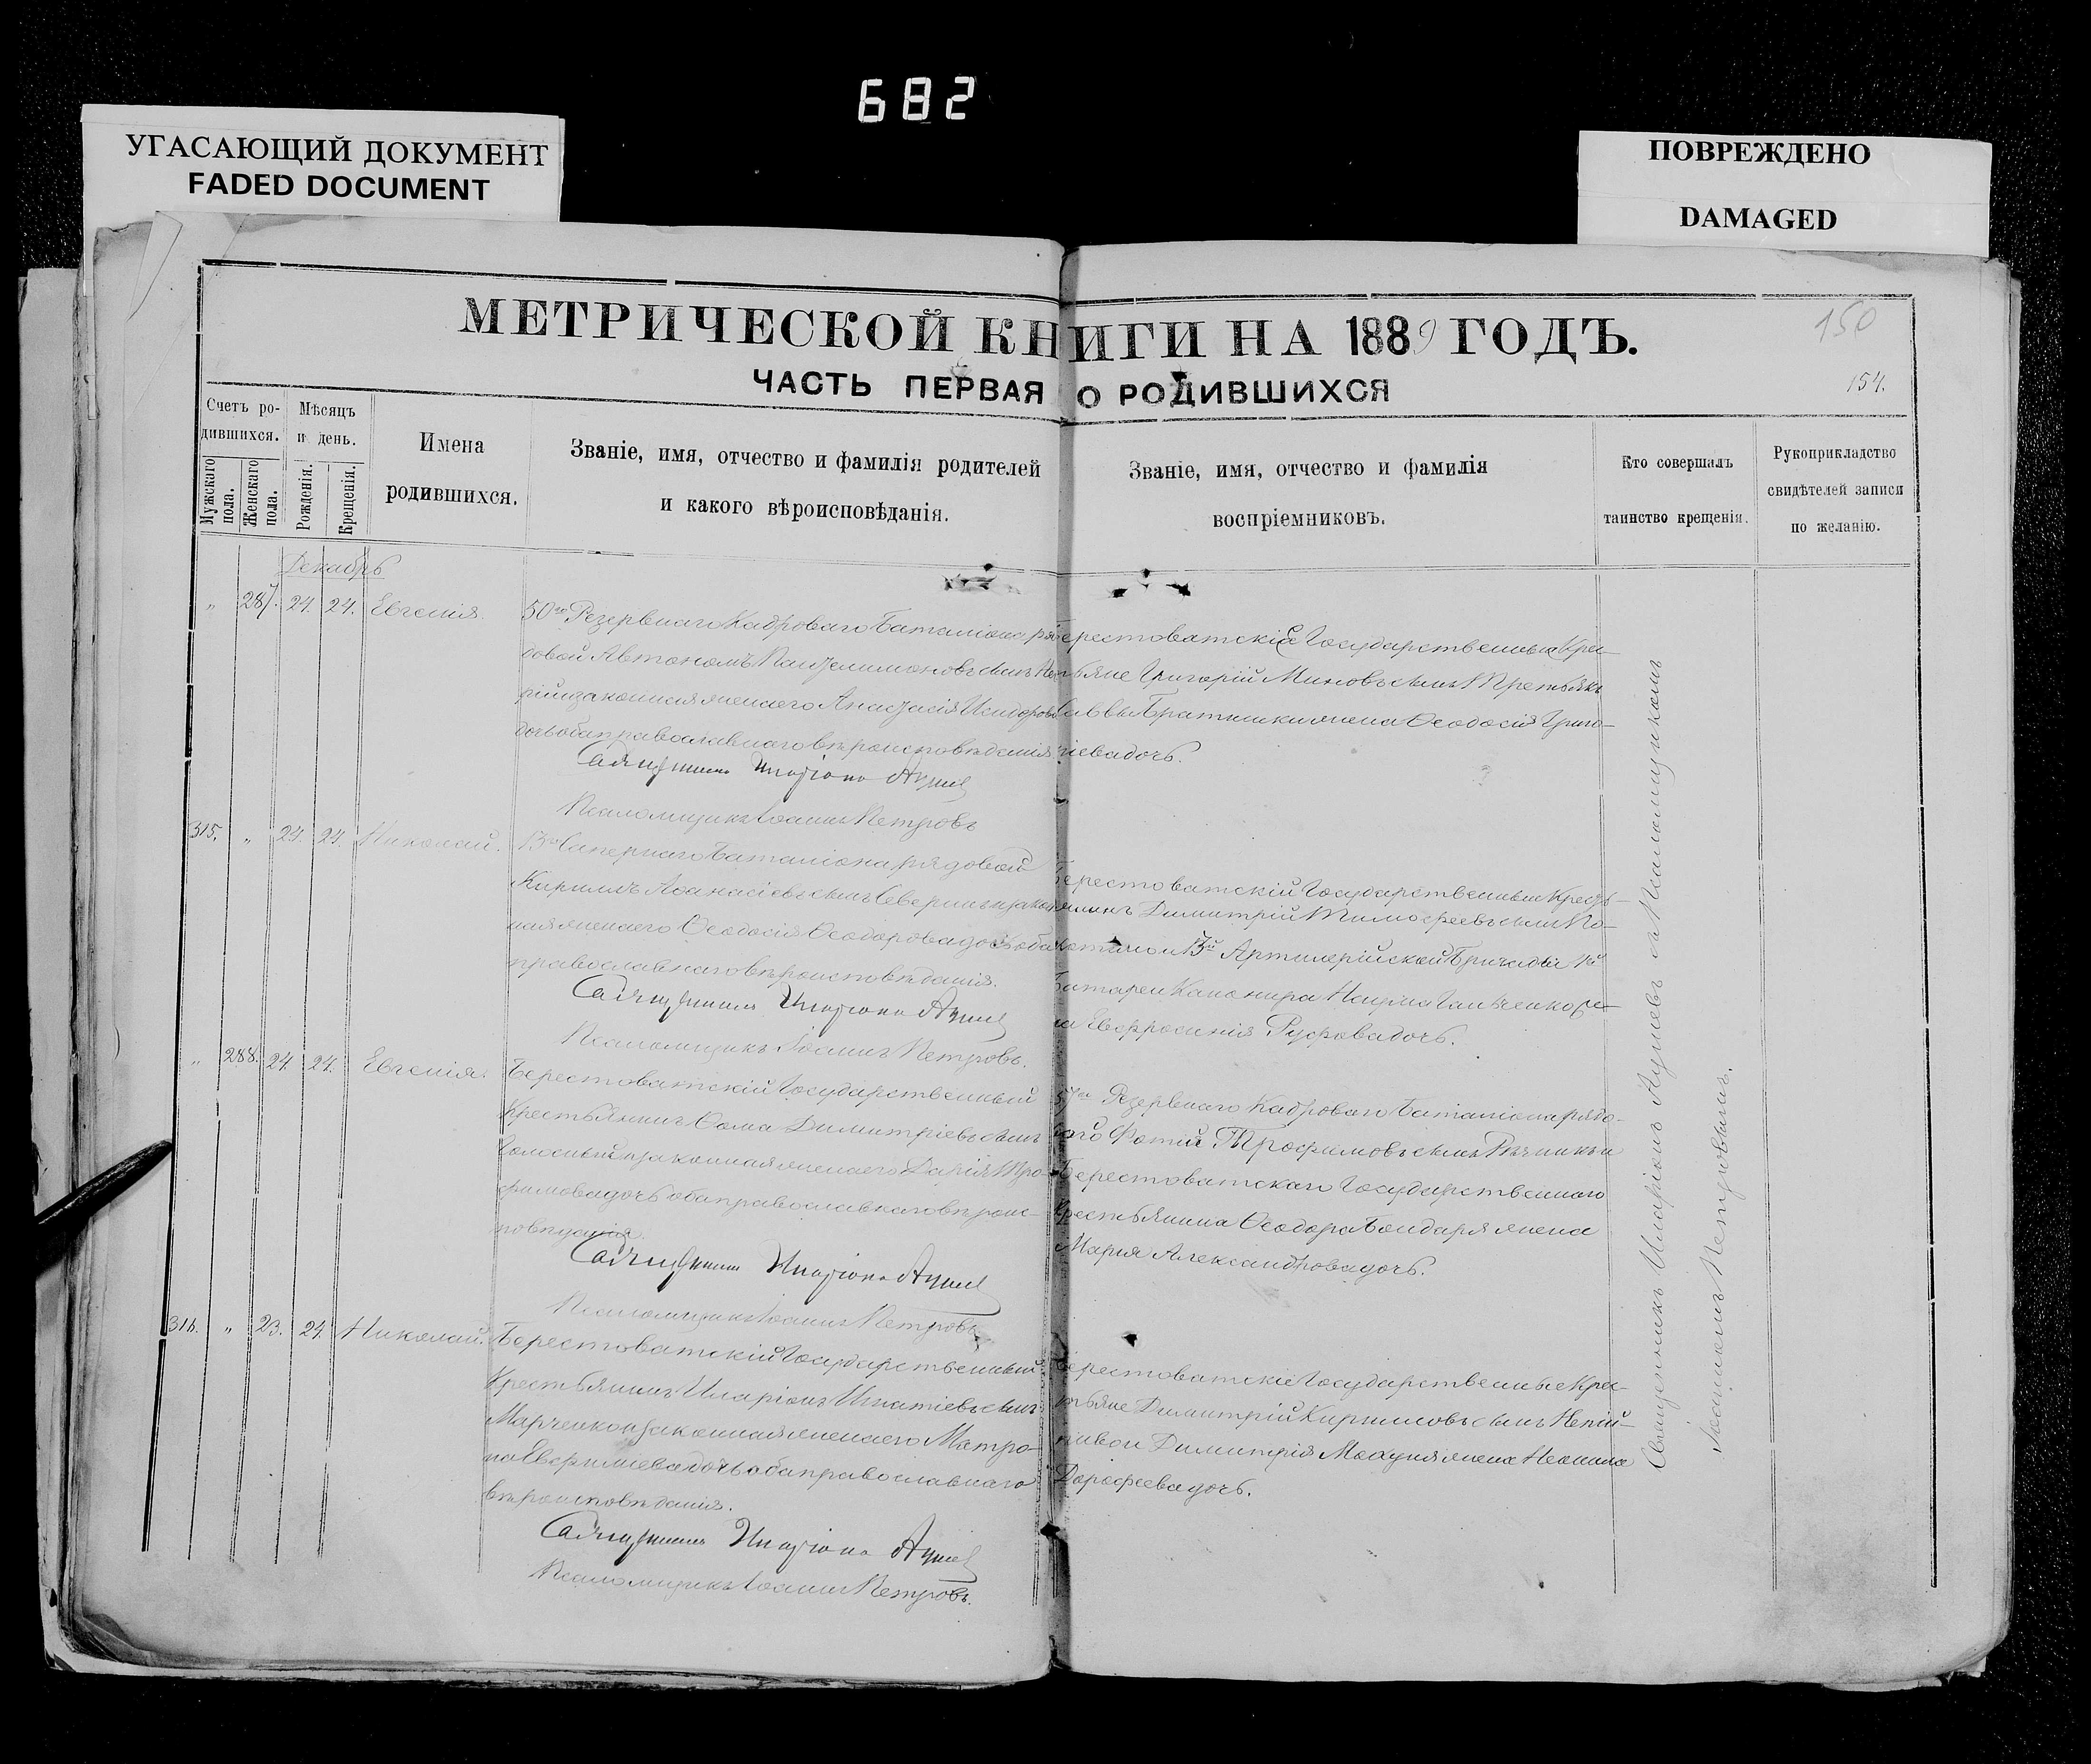 682
УГАСАЮЩИЙ ДОКУМЕНТ
FADED DOCUMENT
ПОВРЕЖДЕНО
DAMAGED
МЕТРИЧЕСКОЙ КНИГИ НА 1889 ГОДЪ.
150
ЧАСТЬ ПЕРВАЯ О РОДИВШИХСЯ
154.
Счетъ ро-
дившихся.
Мужскаго пола.
Женскаго пола.
Мѣсяцъ
и день.
Рожденія.
Крещенія.
Имена
родившихся.
Званіе, имя, отчество и фамилія родителей
и какого вѣроисповѣданія.
Званіе, имя, отчество и фамилія
воспріемниковъ.
Кто совершалъ
таинство крещенія.
Рукоприкладство
свидѣтелей записи
по желанію.
Декабрь
" 287. 24. 24. Евгенія.
50го Резервнаго Кадроваго Баталіона ря-
довой Автономъ Пантелимоновъ сынъ
законная жена его Анастасія Исидорова
дочь оба православнаго вѣроисповѣданія
Священникъ Иларіонъ
Псаломщикъ Іоаннъ Петровъ
Берестоватскіе Государственные Кре-
стьяне Григорій Миновъ сынъ Третьякъ
Саввы Братишки жена Ѳеодосія Григо-
ріева дочь.
315. " 24. 24. Николай.
13го Сапернаго Баталіона рядовой
Кириллъ Аѳанасіевъ сынъ и закон-
ная жена его Ѳеодосія Ѳеодорова дочь оба
православнаго вѣроисповѣданія.
Священникъ Иларіонъ
Псаломщикъ Іоаннъ Петровъ.
Берестоватскій Государственный Кресть-
янинъ Димитрій Тимофеевъ сынъ
Артилерійской Бригады
Батареи Канонира Наума Гальченко же-
на Евфросинія Руфова дочь.
" 288. 24. 24. Евгенія.
Берестоватскій Государственный
Крестьянинъ Ѳома Димитріевъ сынъ
и законная жена его Дарія Тро-
фимова дочь оба православнаго вѣроис-
повѣданія.
Священникъ Иларіонъ
Псаломщикъ Іоаннъ Петровъ
57го Резервнаго Кадроваго Баталіона рядо-
вой Фотій Трофимовъ сынъ и
Берестоватскаго Государственнаго
Крестьянина Ѳеодора Бондаря жена
Марія Александрова дочь.
316. " 23. 24. Николай.
Берестоватскій Государственный
Крестьянинъ Иларіонъ Игнатіевъ сынъ
Марченко и законная жена его Матро-
на Евфиміева дочь оба православнаго
вѣроисповѣданія.
Священникъ Иларіонъ
Псаломщикъ Іоаннъ Петровъ.
Берестоватскіе Государственные Крес-
тьяне Димитрій Кирилловъ сынъ Непій-
пивои Димитрія жена Неонила
Дорофеева дочь.
Священникъ Иларіонъ съ Псаломщикомъ
Іоанномъ Петровымъ.